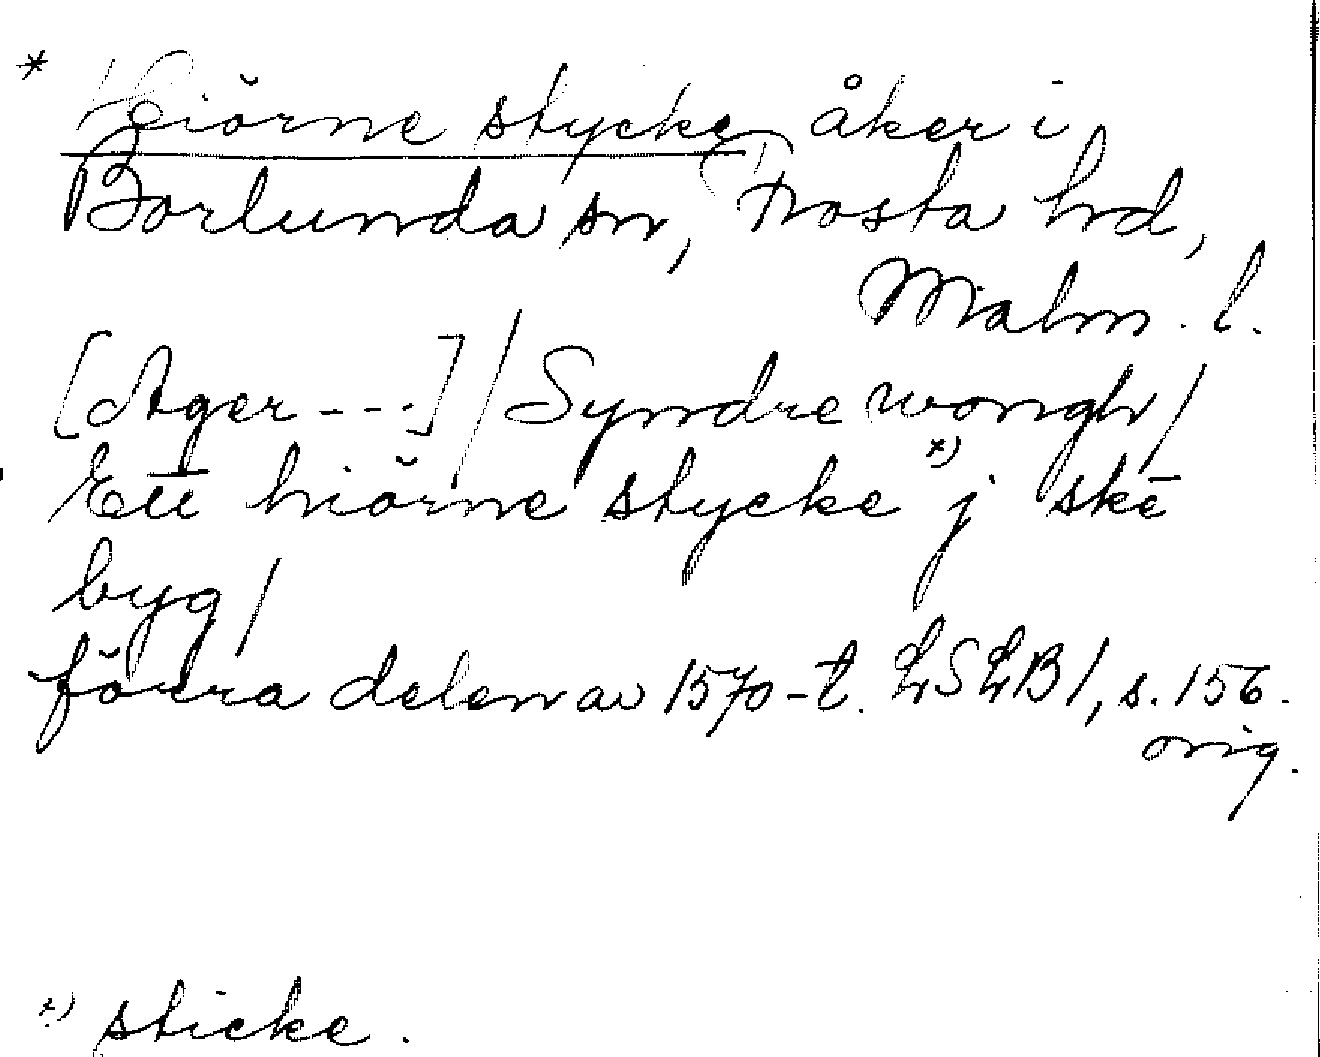 * Hiörne stycke, åker i
Borlunda sn, Frosta hd,
Malm. l.
[Ager ---] / Syndre wongh /
Ett hiörne stycke *) j skē
byg /
förra delen av 1570-t. LSLB 1, s. 156.
orig.
*) sticke.